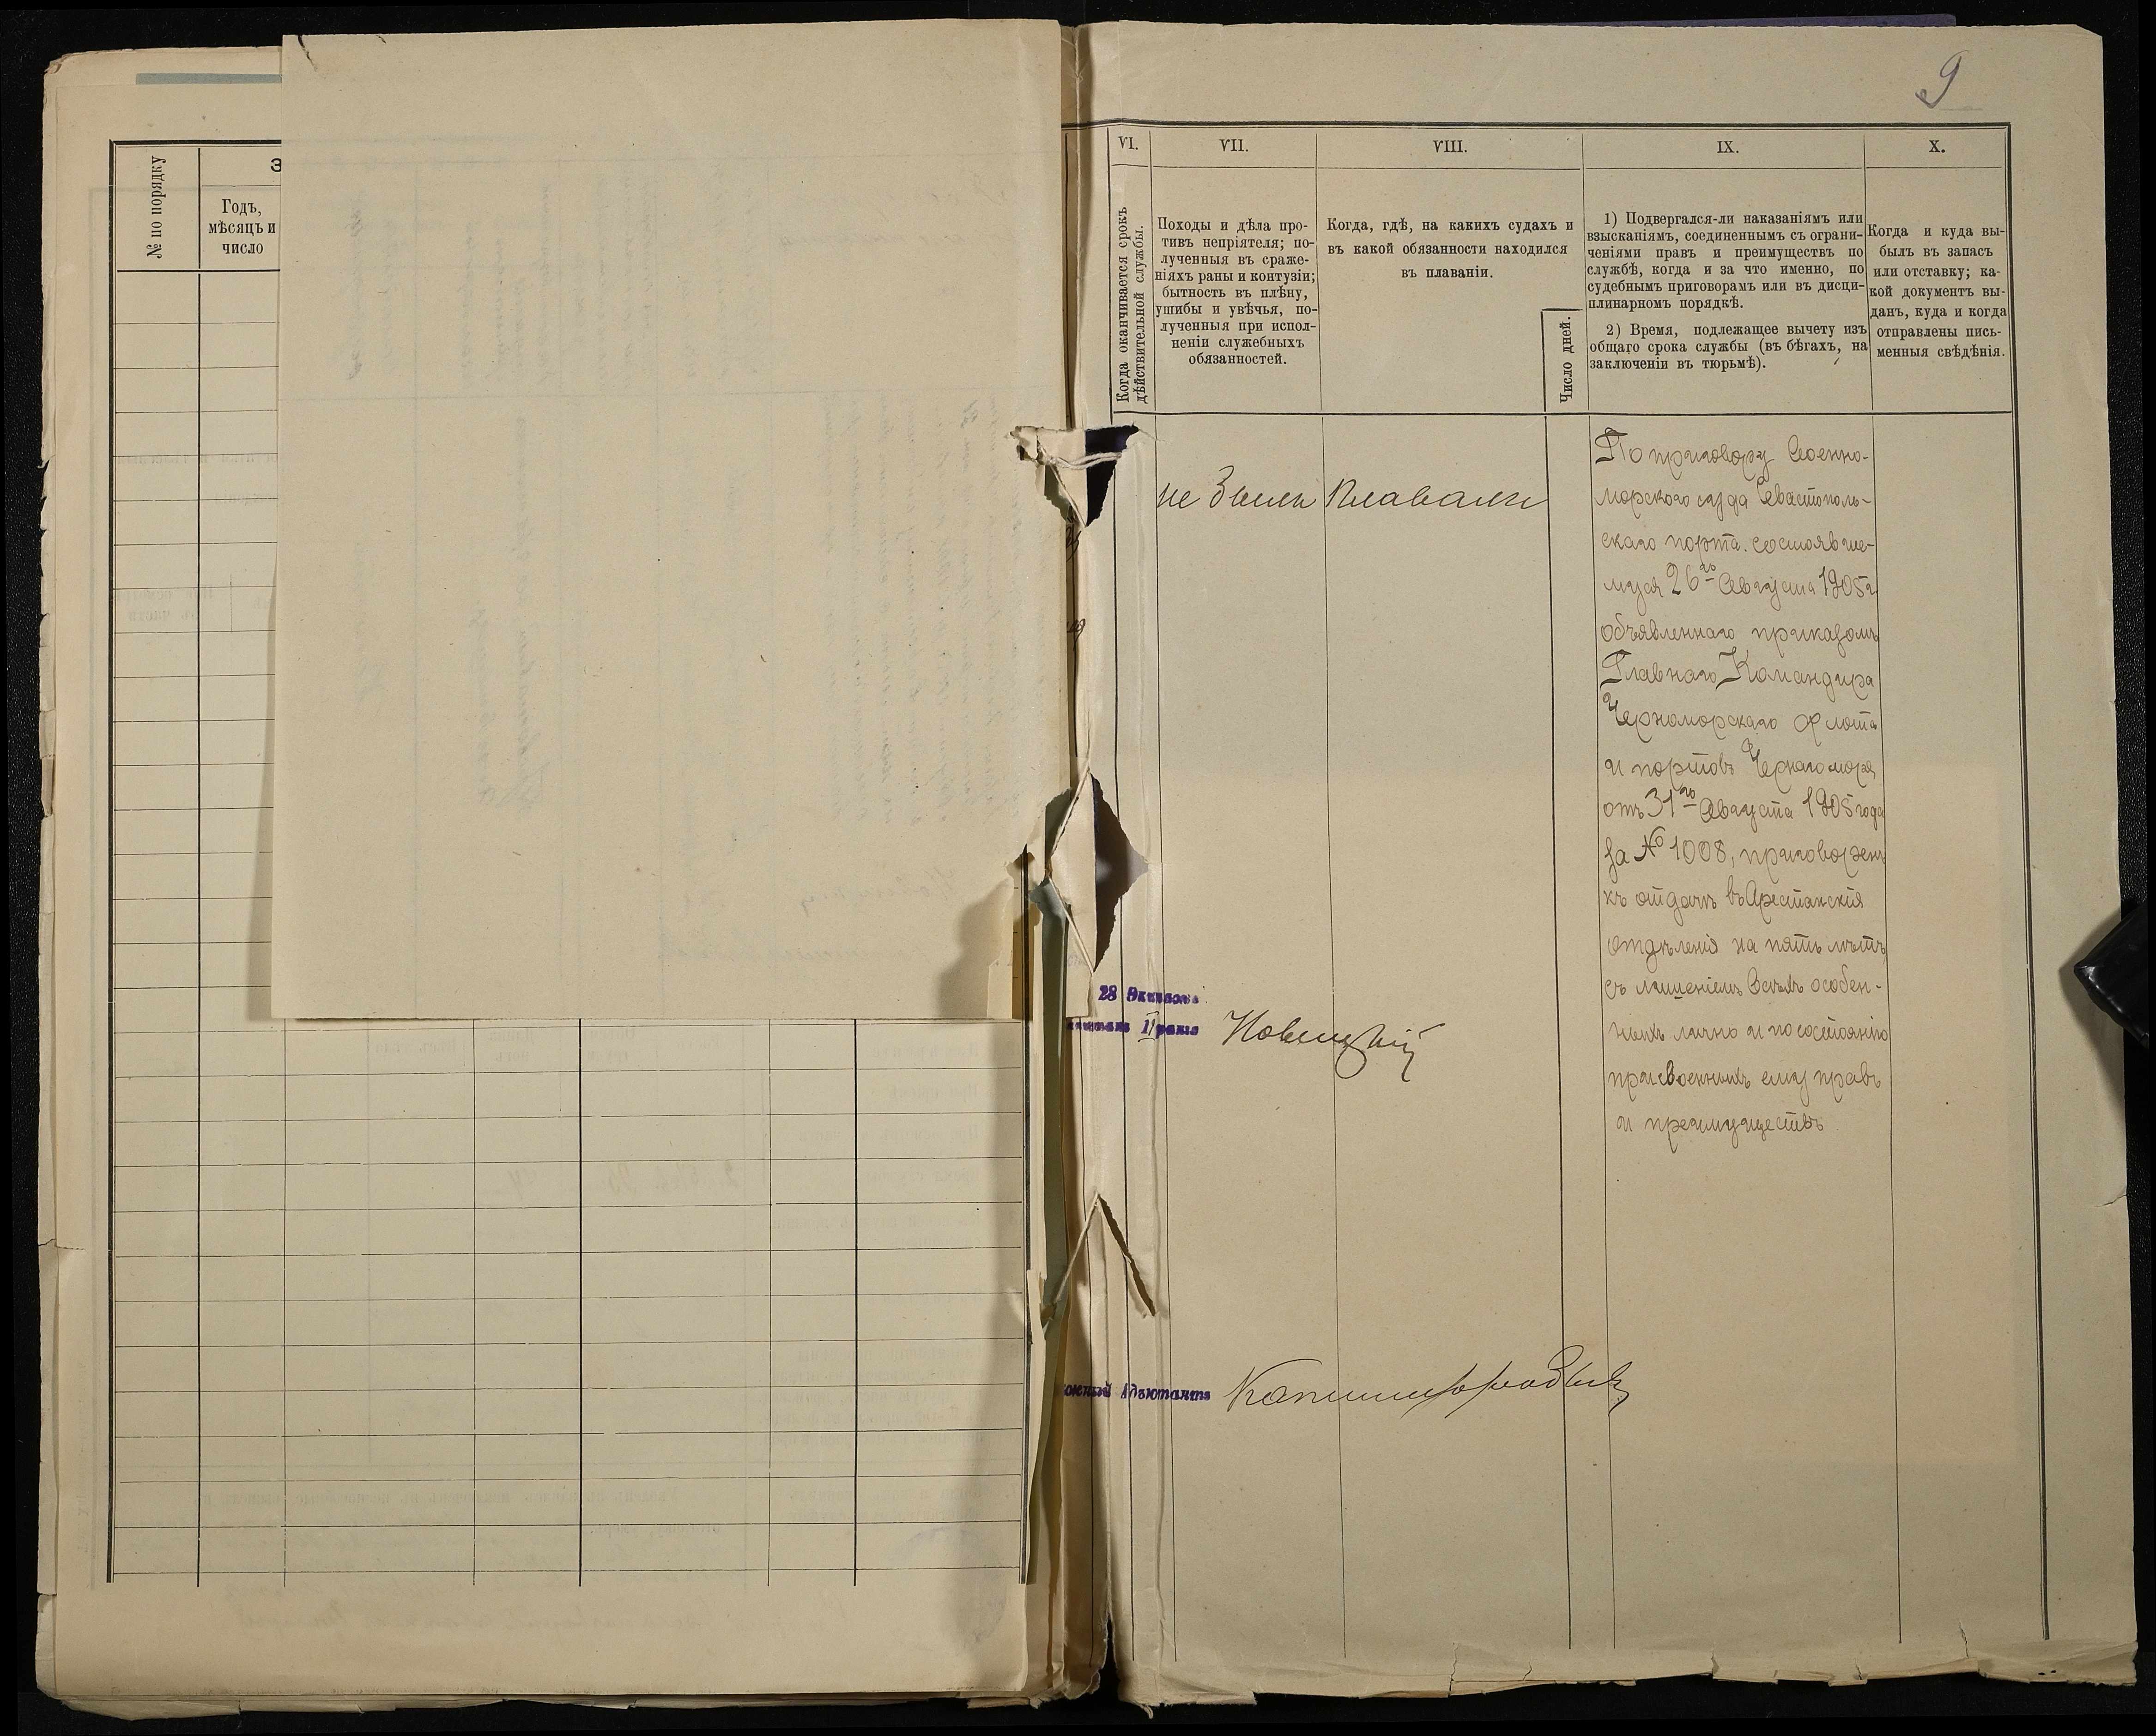 9
№ по порядку
З
Годъ,
мѣсяцъ и
число
VI.
Когда оканчивается срокъ
дѣйствительной службы.
VII.
Походы и дѣла про-
тивъ непріятеля; по-
лученныя въ сраже-
ніяхъ раны и контузіи;
бытность въ плѣну,
ушибы и увѣчья, по-
лученныя при испол-
неніи служебныхъ
обязанностей.
VIII.
Когда, гдѣ, на какихъ судахъ и
въ какой обязанности находился
въ плаваніи.
Число дней.
IX.
1) Подвергался-ли наказаніямъ или
взысканіямъ, соединеннымъ съ ограни-
ченіями правъ и преимуществъ по
службѣ, когда и за что именно, по
судебнымъ приговорамъ или въ дисци-
плинарномъ порядкѣ.
2) Время, подлежащее вычету изъ
общаго срока службы (въ бѣгахъ, на
заключеніи въ тюрьмѣ).
X.
Когда и куда вы-
былъ въ запасъ
или отставку; ка-
кой документъ вы-
данъ, куда и когда
отправлены пись-
менныя свѣдѣнія.
не были
Плавали
По приговору Военно-
морского суда Севастополь-
скаго порта. состоявше-
муся 26го Августа 1905 г
объявленнаго приказомъ
Главнаго Командира
Черноморскаго Флота
и портовъ Чернаго моря
отъ 31го Августа 1905 года
за № 1008, приговоренъ
къ отдачѣ въ Арестанскія
отдѣленія на пять лѣтъ,
съ лишеніемъ всѣхъ особен-
ныхъ лично и по состоянію
присвоенныхъ ему правъ
и преимуществъ
28 Экипажа
II ранга
Новицкій
Адъютантъ